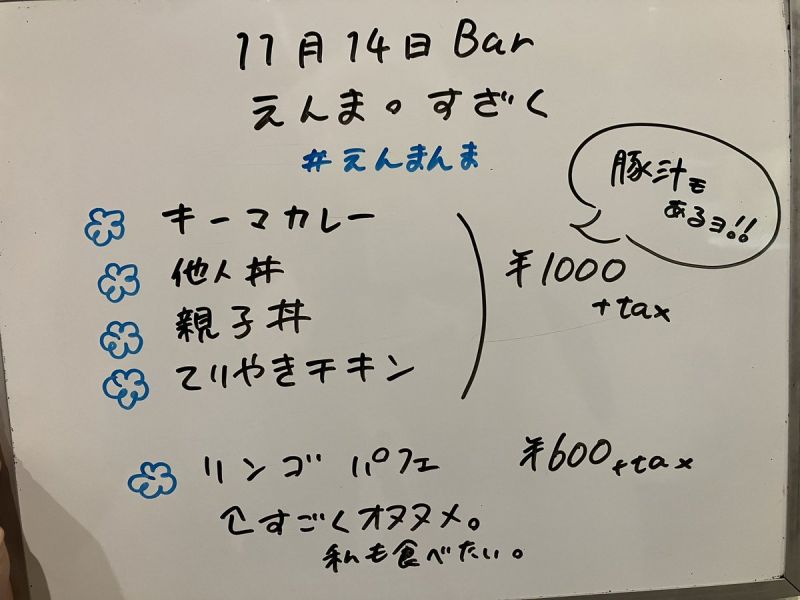 11月14日 Bar
えんま。すざく
#えんまんま
豚汁も
あるヨ!!
キーマカレー
他人丼
¥1000
+tax
親子丼
てりやきチキン
リンゴ パフェ ¥600+tax
↑すごくオススメ。
私も食べたい。